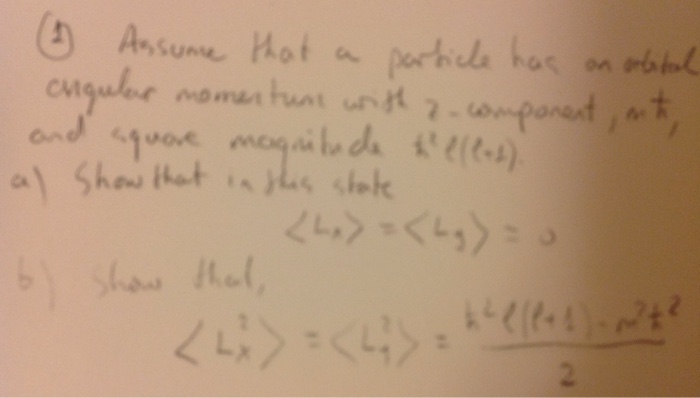 (1) Assume that a particle has an orbital
angular momentum with z-component, mħ,
and square magnitude ħ² l(l+1).
a) Show that in this state
<Lx> = <Ly> = 0
b) Show that,
<Lx²> = <Ly²> = (ħ² l(l+1) - m²ħ²) / 2